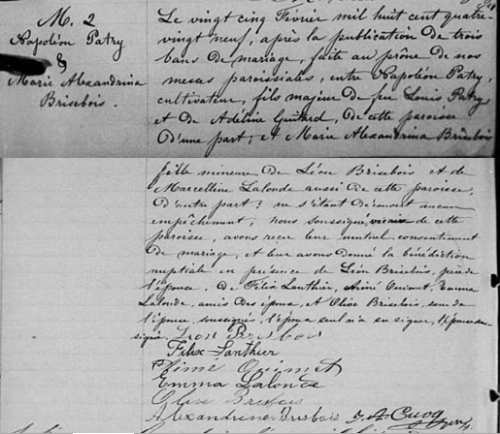 M. 2
Napoléon Patry
&
Marie Alexandrina
Brisebois.
Le vingt cinq Février mil huit cent quatre-
vingt neuf, après la publication de trois
bans de mariage, faite au prône de nos
messes paroissiales, entre Napoléon Patry
cultivateur, fils majeur de feu Louis Patry
et de Adéline Guitard, de cette paroisse
d'une part; et Marie Alexandrina Brisebois
fille mineure de Léon Brisebois et de
Marcelline Lalonde aussi de cette paroisse,
d'autre part; ne s'étant découvert aucun
empêchement, nous soussigné, vicaire de cette
paroisse, avons reçu leur mutuel consentement
de mariage, et leur avons donné la bénédiction
nuptiale en présence de Léon Brisebois, père de
l'épouse, de Félix Lanthier, Aimé Ouimet, Emma
Lalonde, amis des époux, et Olise Brisebois, soeur de
l'épouse, soussignés, l'époux seul n'a su signer, l'épouse a
signé. Leon Brisbois
Félix Lanthier
Aimé Ouimet
Emma Lalonde
Olise Brisebois
Alexandrine Brisbois J. A. Cuoq